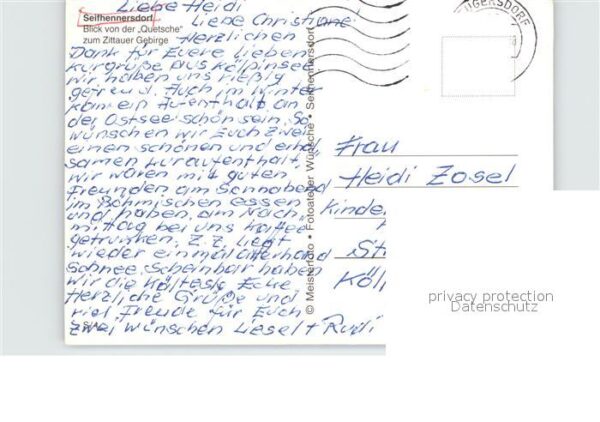 Liebe Heidi
Liebe Christiane
Seifhennersdorf
Blick von der „Quetsche"
zum Zittauer Gebirge
Herzlichen
Dank für Euere lieben
kurgrüße aus Kölpinsee
wir haben uns rießig
gefreud. Auch im Winter
kan ein Aufenthalt an
der Ostsee schön sein. So
wünschen wir Euch zwei
einen schönen und erhol
samen kuraufenthalt.
Wir waren mit guten
Freunden am Sonnabend
im Böhmischen essen
und haben am Nach
mittag bei uns kaffee
getrunken. Z.Z. liegt
wieder einmal allerhand
Schnee. Scheinbar haben
wir die kälteste Ecke
Herzliche Grüße und
viel Freude für Euch
zwei wünschen Liesel + Rudi
© Meisterfoto • Fotoatelier Wünsche • Seifhennersdorf
GERSDORF
Frau
Heidi Zosel
Kinder
St
Köl
privacy protection
Datenschutz